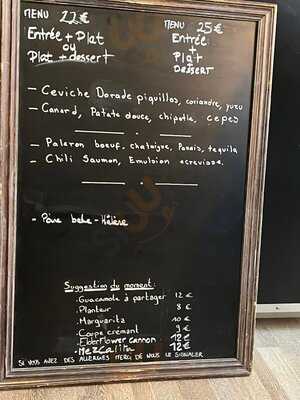 MENU 22€
Entrée + Plat
ou
Plat + dessert
MENU 25€
Entrée
+
Plat
+
Dessert
- Ceviche Dorade piquillos, coriandre, yuzu
- Canard, Patate douce, chipotle, cepes
- Paleron boeuf, chataigne, Panais, tequila
- Chili Saumon, Emulsion ecrevisse.
- Poire belle-Hélène
Suggestion du moment:
.Guacamole à partager 12€
.Planteur 8€
.Marguarita 10€
.Coupe crémant 9€
.Elderflower cannon 12€
.Mezcalita 12€
SI VOUS AVEZ DES ALLERGIES MERCI DE NOUS LE SIGNALER